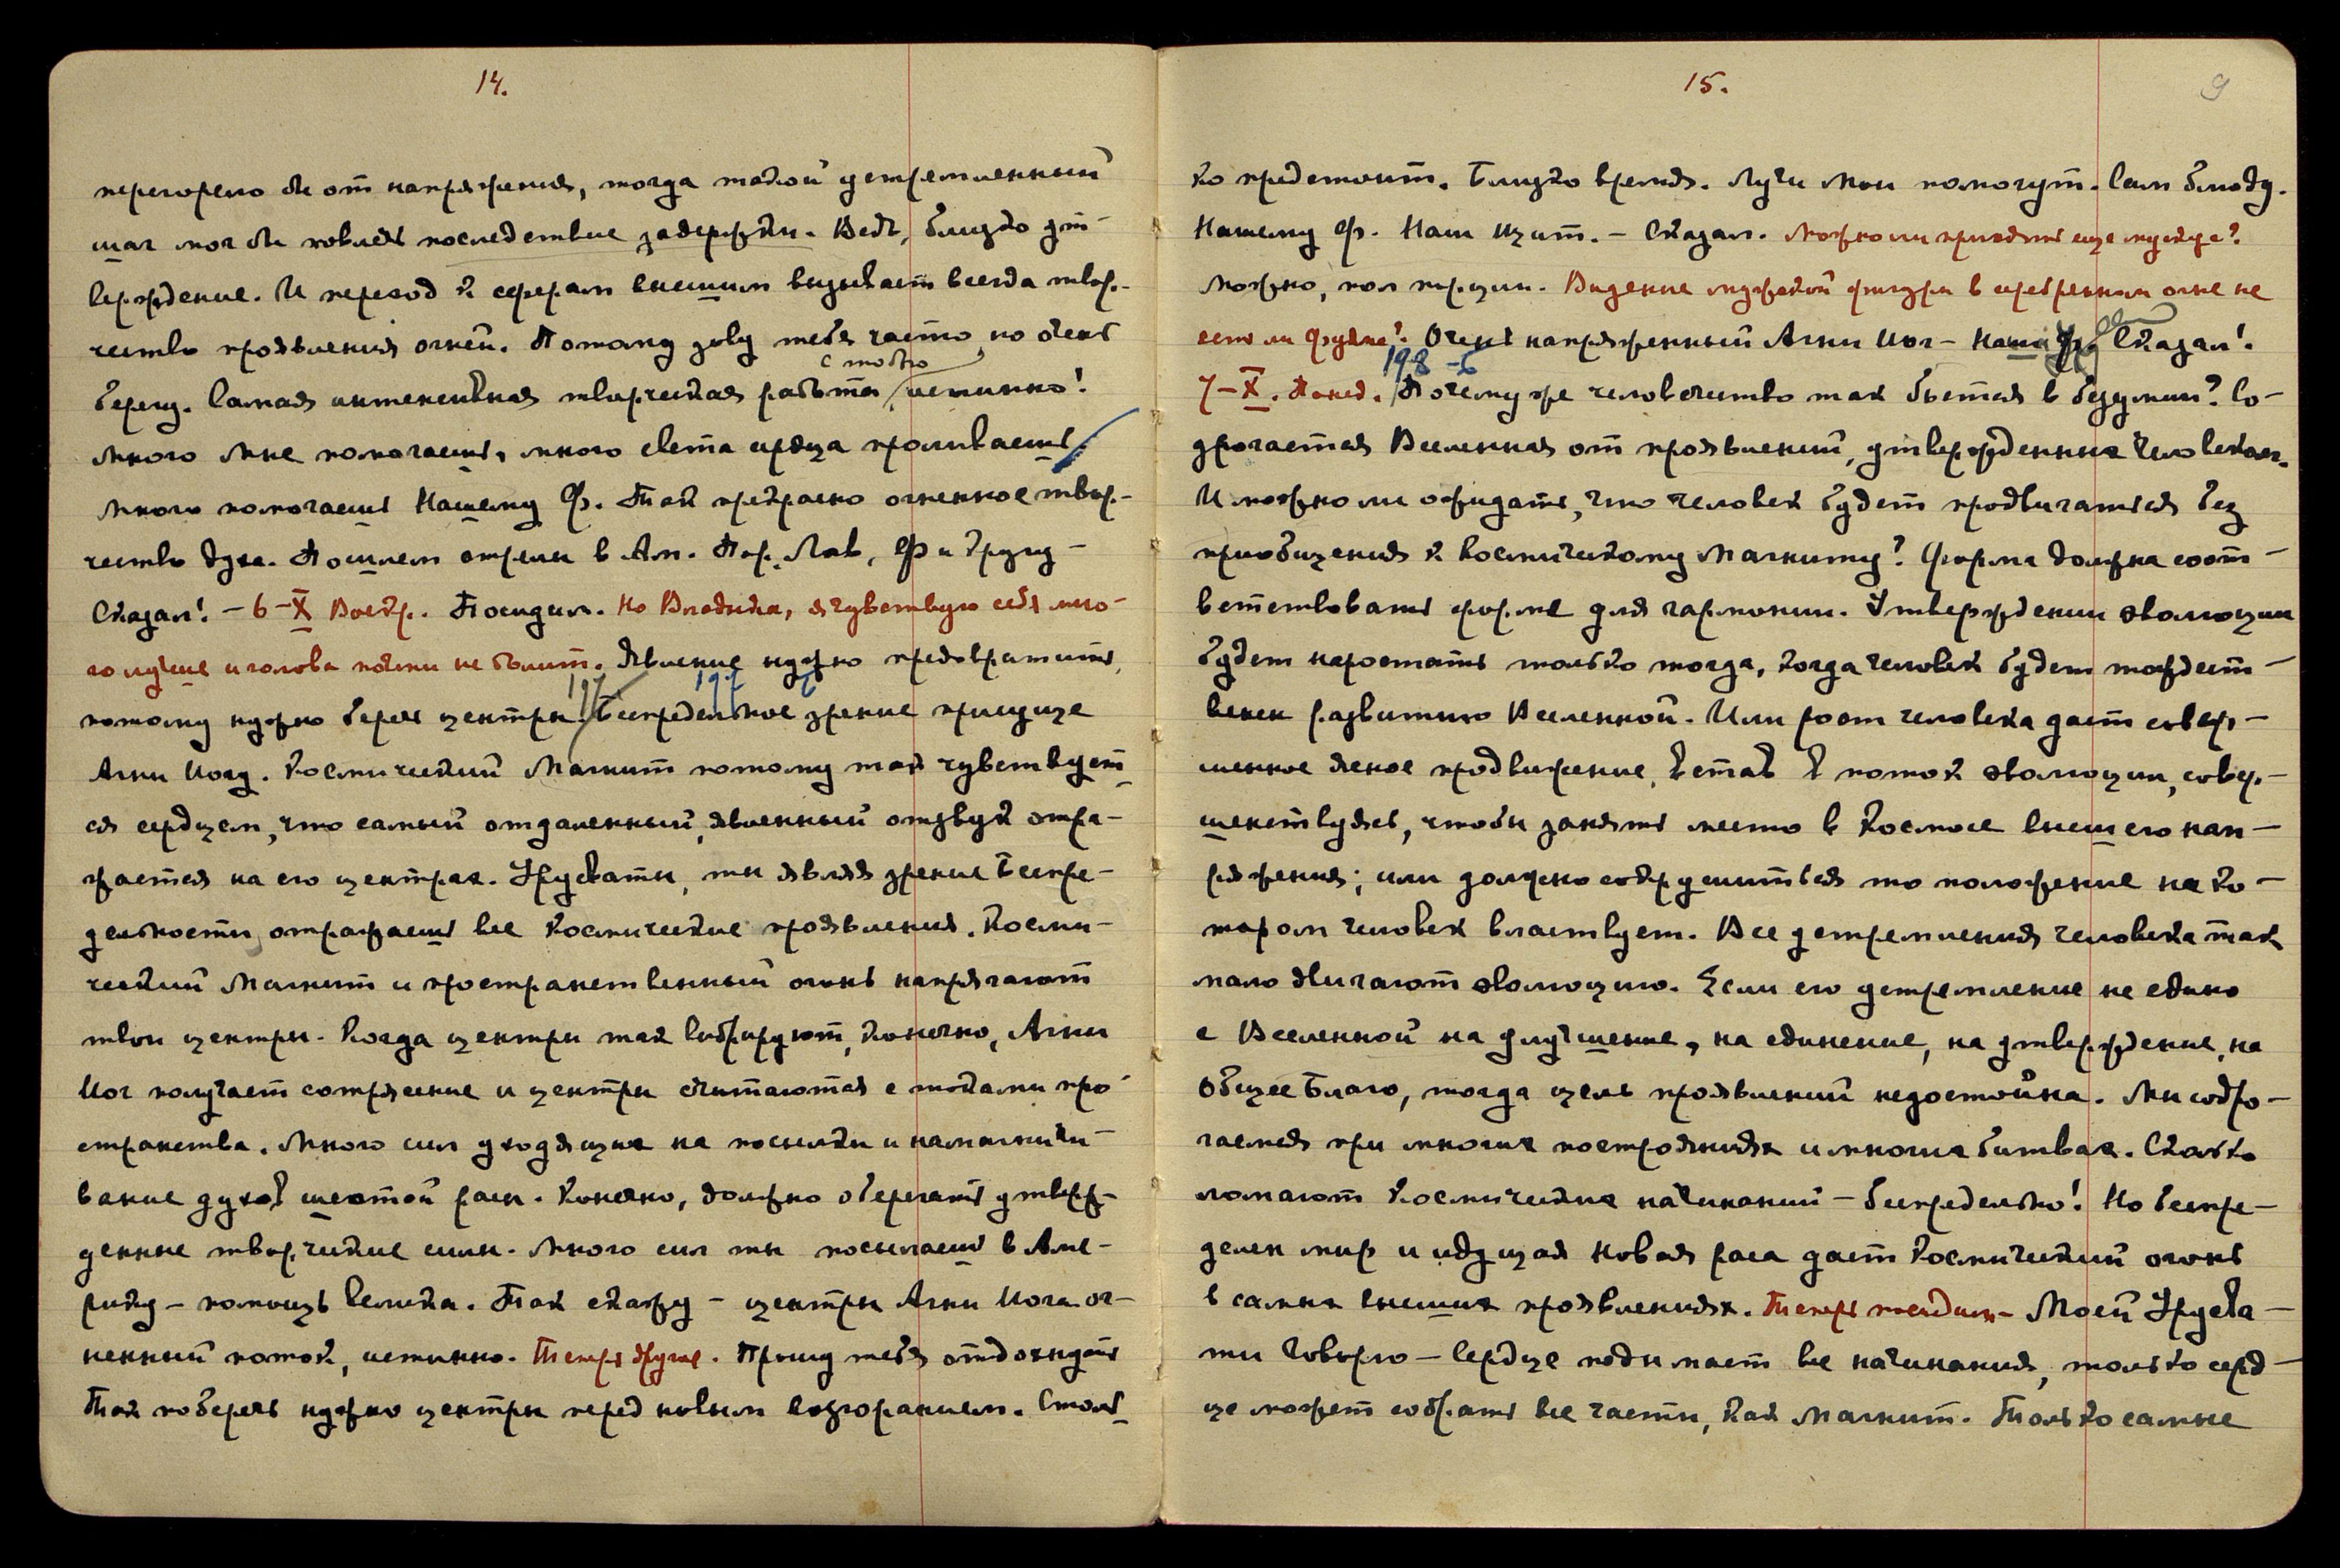 14.
перегорело бы от напряжения, тогда такой устремленный
шаг мог бы повлечь последствие задержки. Ведь, близко ут-
верждение. И переход к сферам высшим вызывает всегда твор-
чество проявления огней. Потому зову тебя часто, но очень
с тобою
берегу. Самая интенсивная творческая работа, истинно!
Много Мне помогаешь, много света сердца проливаешь,
Много помогаешь Нашему Ф. Так прекрасно огненное твор-
чество духа. Пошлем стрелы в Ам. Пор. Лав, Ф и другу –
Сказал! – 6-X Воскр. Посидим. Но Владыка, я чувствую себя мно-
го лучше и голова почти не болит. Явление нужно предвратить,
197 197 б
потому нужно беречь центры. Беспредельное зрение присуще
Агни Йогу. Космический Магнит потому так чувствует-
ся сердцем, что самый отдаленный, явленный отзвук отра-
жается на его центрах. Урусвати, ты являя зрение Беспре-
дельности, отражаешь все космические проявления. Косми-
ческий Магнит и пространственный огонь напрягают
твои центры. Когда центры так вибрируют, конечно, Агни
Йог получает сотрясение и центры сочетаются с токами про-
странства. Много сил уходящих на посылки и намагничи-
вание духов шестой расы. Конечно, должно оберегать утверж-
денные творческие силы. Много сил ты посылаешь в Аме-
рику – помощь велика. Так скажу – центры Агни Йога ог-
ненный поток, истинно. Теперь другое. Прошу тебя отдохнуть
Так поберечь нужно центры перед новым возгоранием. Столь-
15.
9
ко предстоит. Близко время. Лучи Мои помогут. Сам блюду.
Нашему Ф. Наш Щит. – Сказал. Можно ли продать еще
Можно, пол порции. Видение мужской фигуры в серебренном огне не
есть ли Фуяма? Очень напряженный Агни Йог – Наш Ф. Сказал!
198 -б
7-X. Понед. Почему же человечество так бьется в безумии? Со-
дрогается Вселенная от проявлений, утвержденных человеком.
И можно ли ожидать, что человек будет продвигаться без
приобщения к космическому Магниту? Форма должна соот-
ветствовать форме для гармонии. Утверждении эволюции
будет нарастать только тогда, когда человек будет тождест-
венен развитию Вселенной. Или рост человека дает совер-
шенное ясное продвижение, встав в поток эволюции, совер-
шенствуясь, чтобы занять место в Космосе высшего нап-
ряжения; или должно сокрушиться то положение на ко-
тором человек властвует. Все устремления человека так
мало двигают эволюцию. Если его устремление не едино
с Вселенной на улучшение, на единение, на утверждение, на
Общее Благо, тогда цель проявлений недостойна. Мы содро-
гаемся при многих построениях и многих битвах. Сколько
ломают космических начинаний – беспредельно! Но беспре-
делен мир и идущая новая раса дает космический огонь
в самых высших проявлениях. Теперь посидим – Моей Урусва-
ти говорю – Сердце поднимает все начинания, только серд-
це может собрать все части, как магнит. Только самые